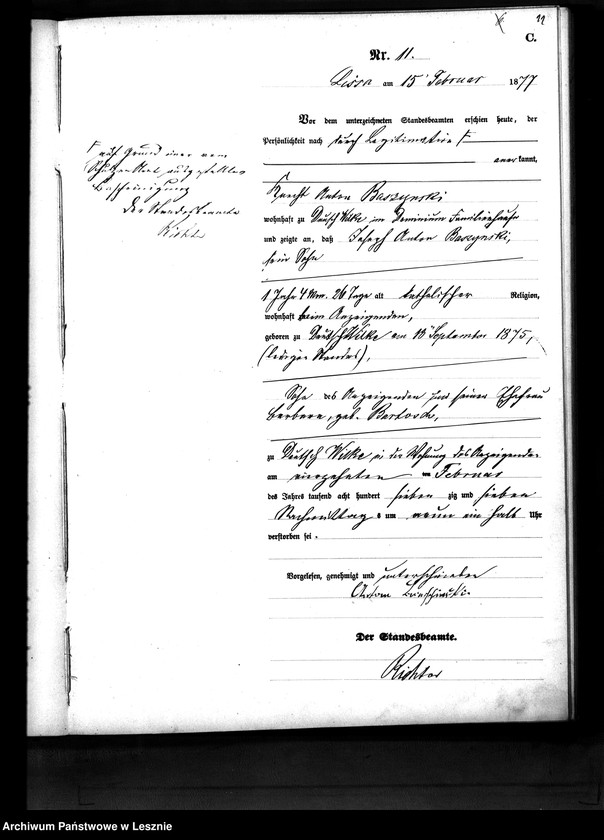 11
C.
Nr. 11.
Lissa am 15 Februar 1877
Vor dem unterzeichneten Standesbeamten erschien heute, der
Persönlichkeit nach durch Legitimation
anerkannt,
auf Grund einer vom
ausgestellten
Bescheinigung
Der Standesbeamte
Richter
Knecht Anton Baszynski
wohnhaft zu Deutsch Wilke im Dominium Familienhause
und zeigte an, daß Joseph Anton Baszynski,
sein Sohn
1 Jahr 4 Mon. 26 Tage alt katholischer Religion,
wohnhaft beim Anzeigenden,
geboren zu Deutsch Wilke am 18 September 1875,
(ledigen Standes),
Sohn des Anzeigenden und seiner Ehefrau
Barbara, geb.
zu Deutsch Wilke in der Wohnung des Anzeigenden
am vierzehnten Februar
des Jahres tausend acht hundert sieben zig und sieben
Nachmittags um neun ein halb Uhr
verstorben sei.
Vorgelesen, genehmigt und unterschrieben
Anton
Der Standesbeamte.
Richter
Archiwum Państwowe w Lesznie